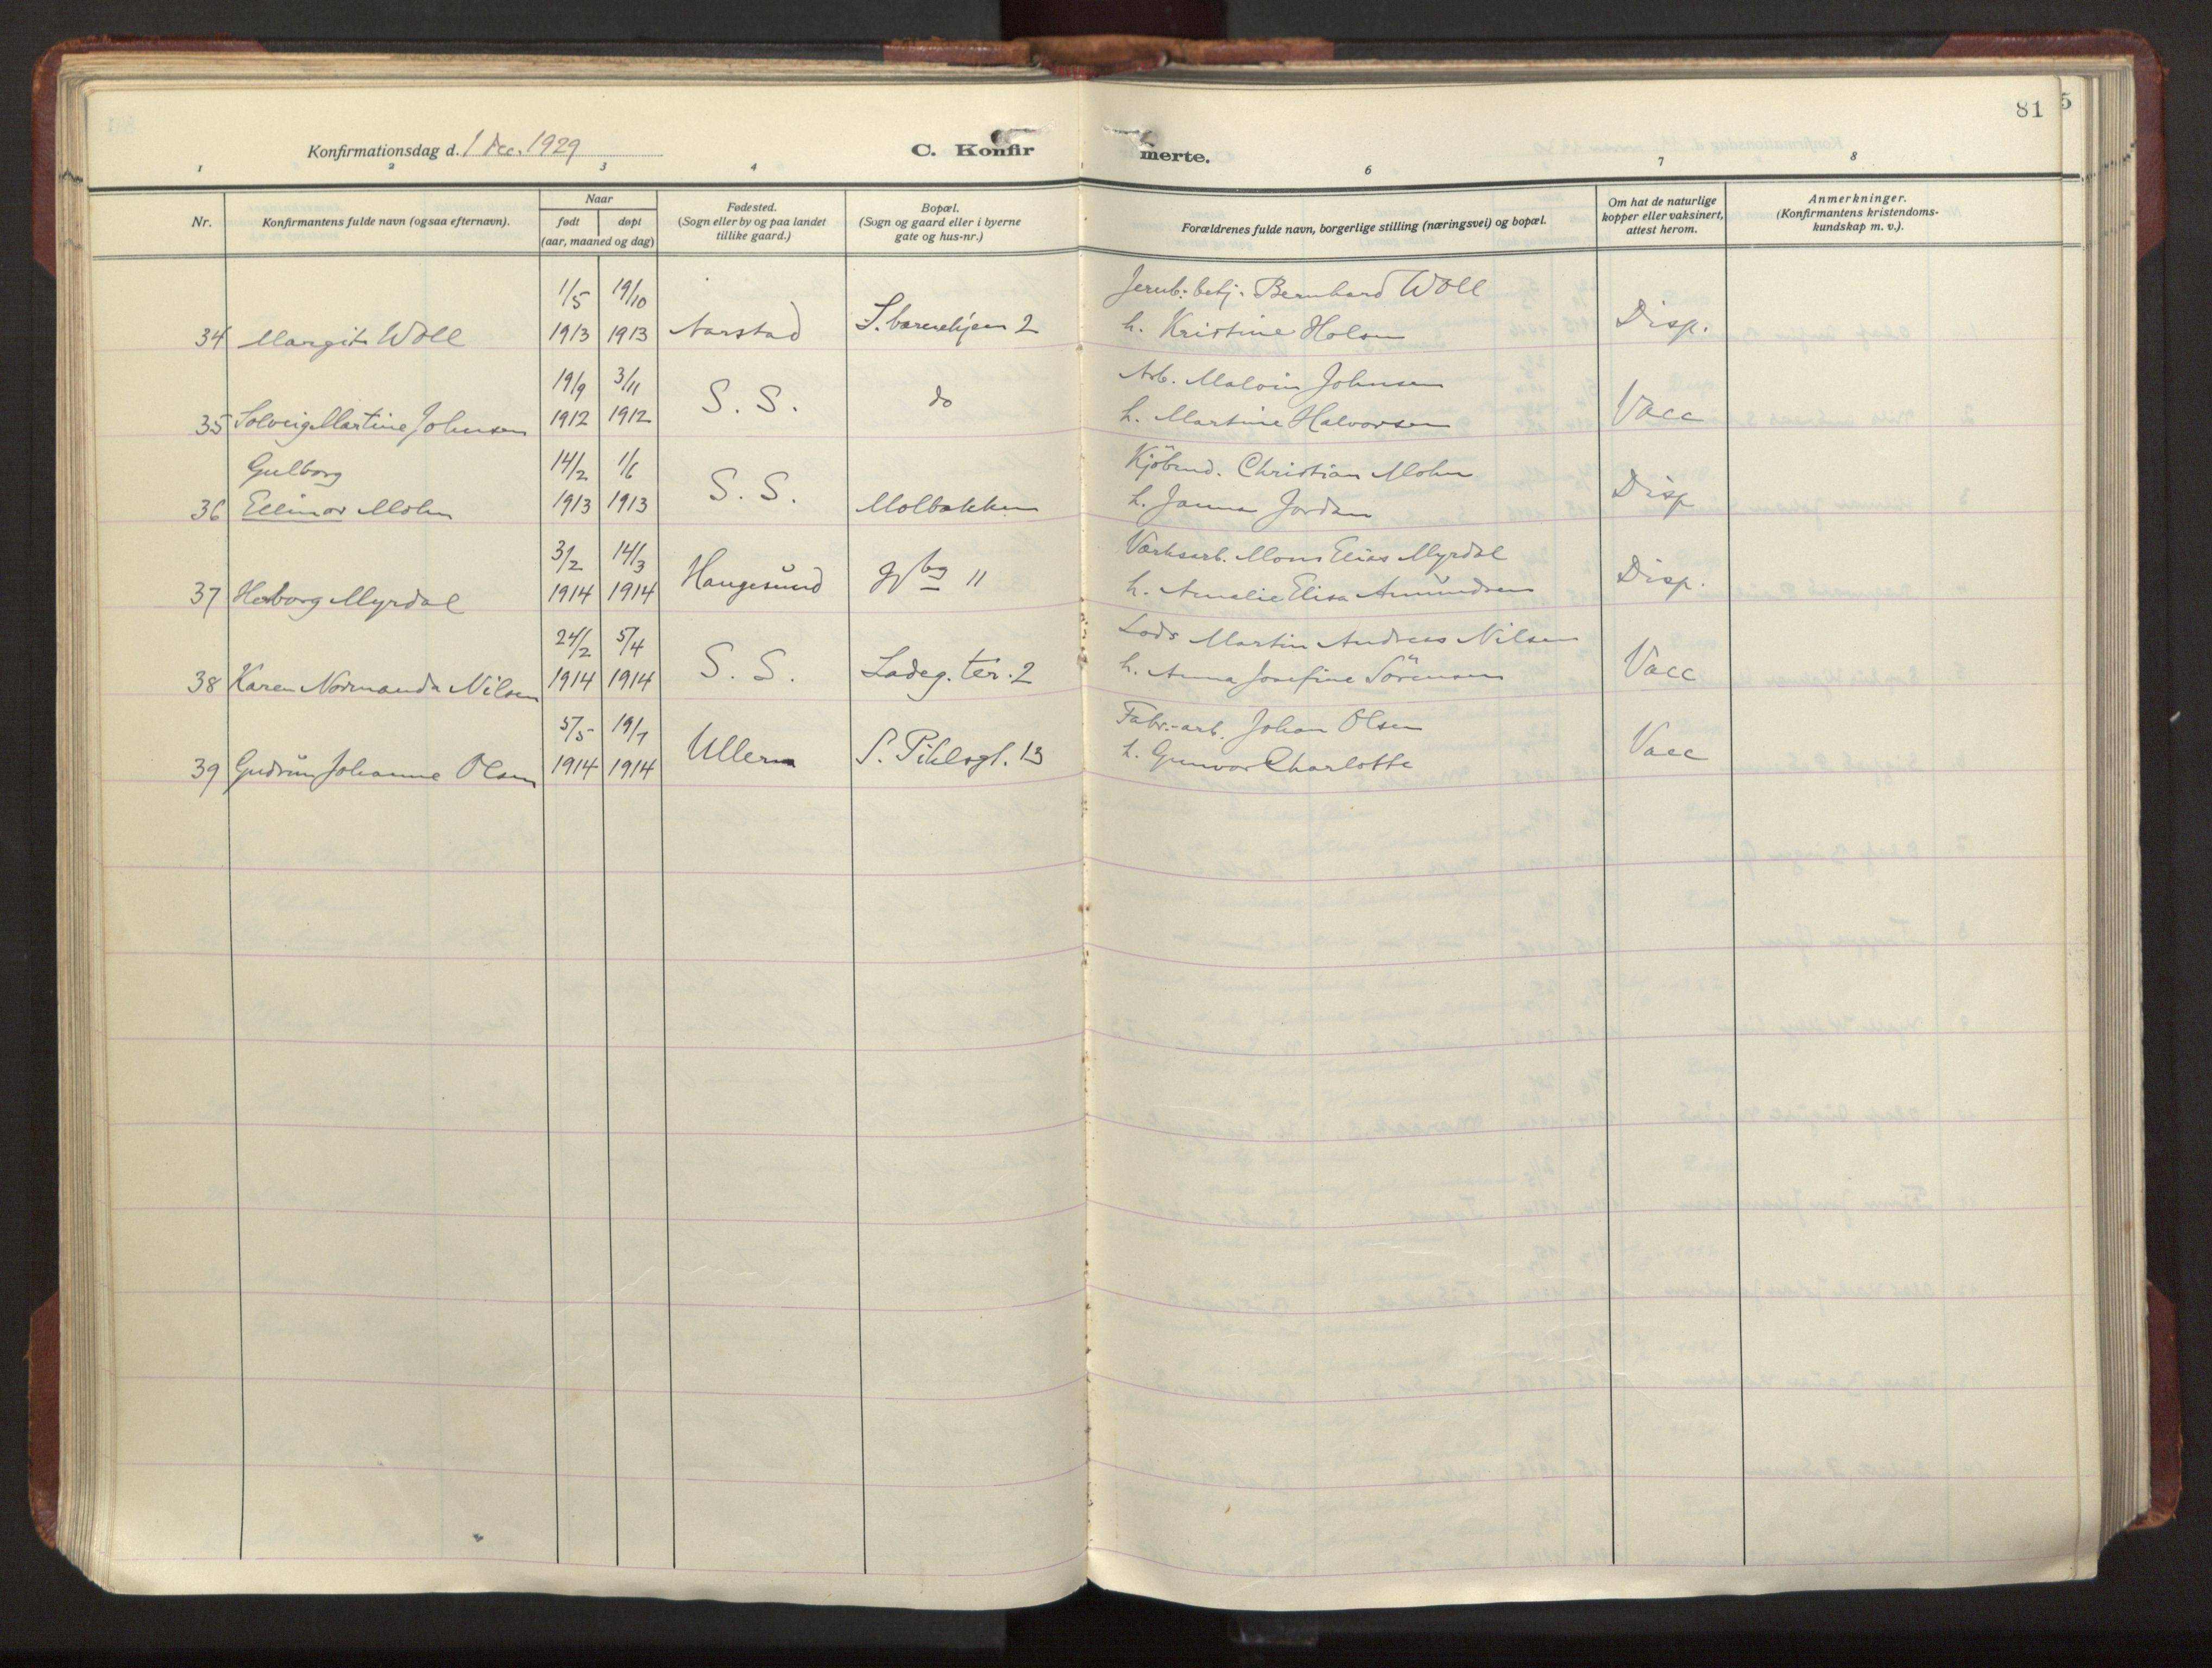 81
5
Konfirmationsdag d. 1 Dec. 1929
C. Konfir
merte.
1 2 3 4 6 7 8
Nr.
Konfirmantens fulde navn (ogsaa efternavn).
Naar
født døpt
(aar, maaned og dag)
Fødested.
(Sogn eller by og paa landet
tillike gaard.)
Bopæl.
(Sogn og gaard eller i byerne
gate og hus-nr.)
Forældrenes fulde navn, borgerlige stilling (næringsvei) og bopæl.
Om hat de naturlige
kopper eller vaksinert,
attest herom.
Anmerkninger.
(Konfirmantens kristendoms-
kundskap m. v.).
1/5 19/10 Jernb: betj. Bernhard Woll
34 Margit Woll 1913 1913 Aarstad 2 h. Kristine Holm Disp.
19/9 3/11 Arb. Malvin Johnsen
35 Solveig Martine Johnsen 1912 1912 S. S. do h. Martine Halvorsen Vacc
Gulborg 14/2 1/6 Kjöbmd. Christian Mohn
36 Ellinor Mohn 1913 1913 S. S. Molbakken h. Janna Jordan Disp
3/2 14/3 Værksarb. Mons Elias Myrdal
37 Herborg Myrdal 1914 1914 Haugesund 11 h. Amalie Elisa Amundsen Disp.
24/2 5/4 Lods Martin Andreas Nilsen
38 Karen Normanda Nilsen 1914 1914 S. S. Ladeg. ter. 2 h. Anna Josefine Sörensen Vacc
5/5 19/7 Fabr.-arb. Johan Olsen
39 Gudrun Johanne Olsen 1914 1914 Ullern P. Pihlsgt. 13 h. Gunvor Charlotte Vacc